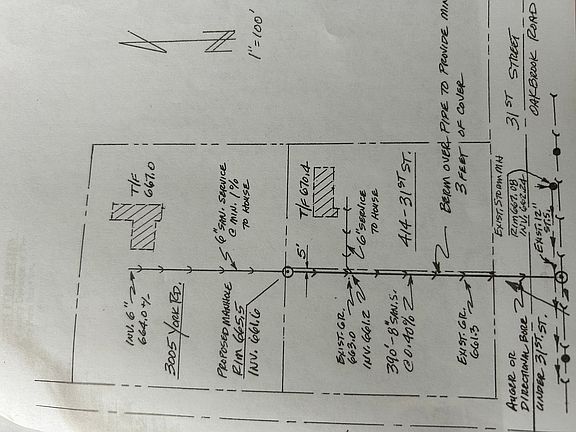 1"=100'
T/F
667.0
6" SAN. SERVICE
@ MIN. 1%
TO HOUSE
INV. 6"
664.0±
3005 YORK RD.
PROPOSED MANHOLE
RIM 665.5
INV. 661.6
T/F 670.4
5'
6" SERVICE
TO HOUSE
414-31ST ST.
EXIST. GR.
663.0
INV. 661.2
390'-8" SAN. S.
@ 0.40%
EXIST. GR.
661.3
BERM OVER PIPE TO PROVIDE MIN
3 FEET OF COVER
EXIST. SAN MH
RIM 667.08
INV.
EXIST. 12"
31ST STREET
OAKBROOK ROAD
AUGER OR
DIRECTIONAL BORE
UNDER 31ST. ST.